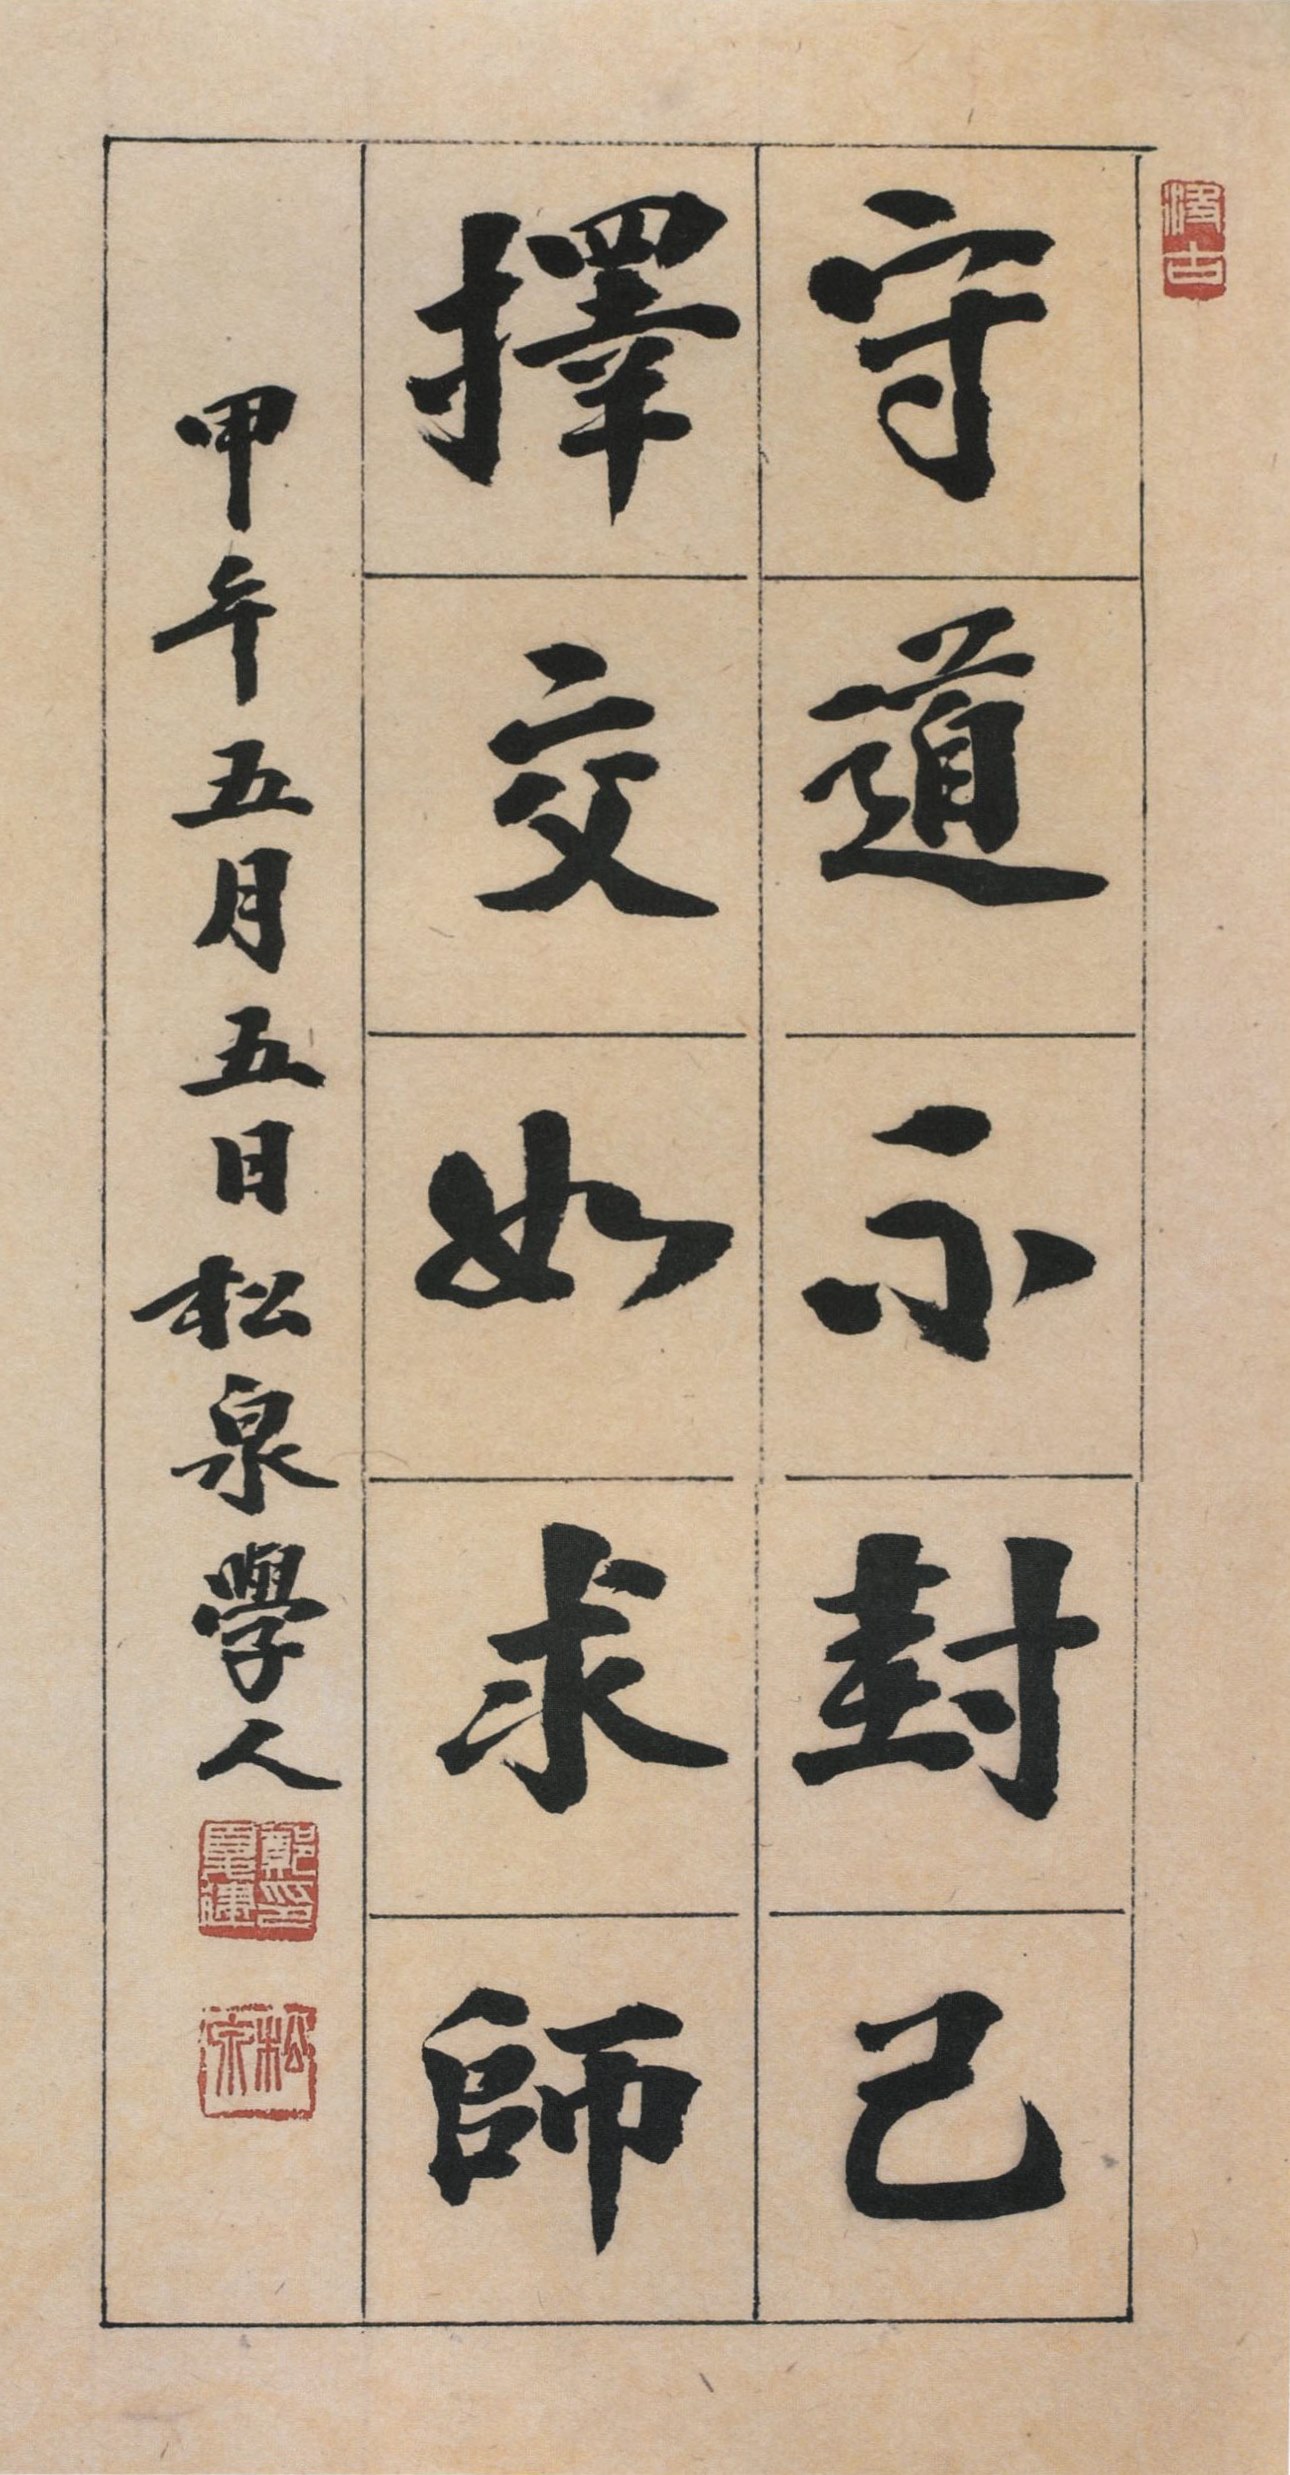 守道不封己
擇交如求師
甲午五月五日松泉學人